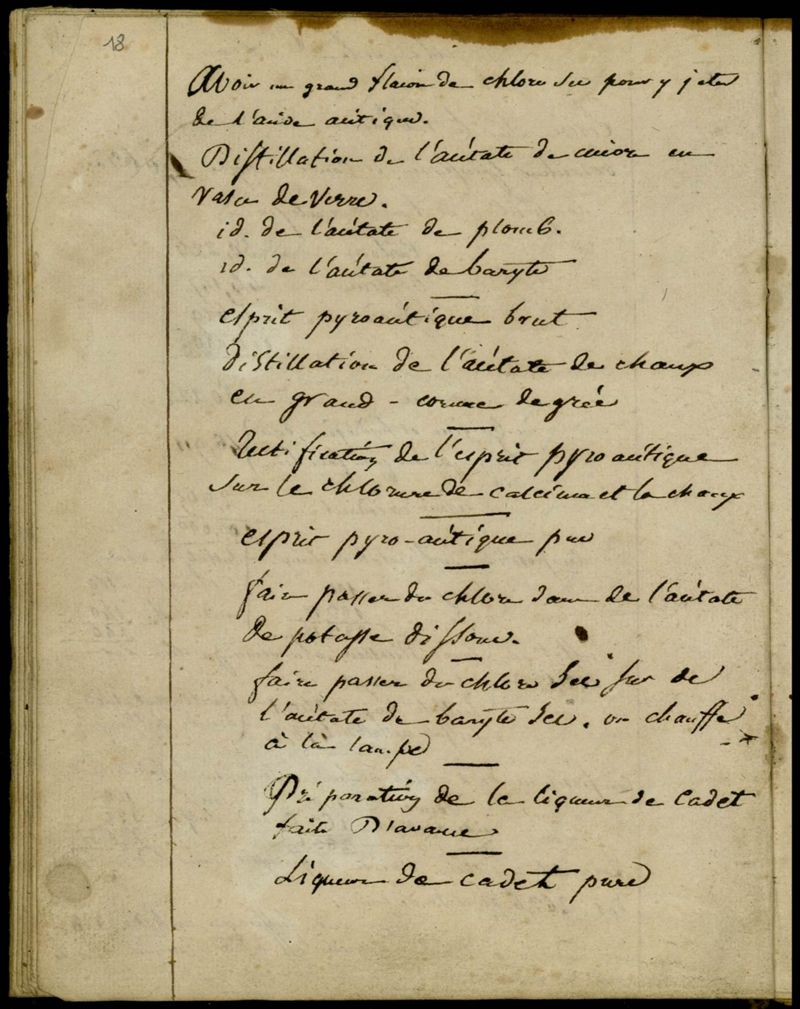 18
Avoir un grand flacon de chlore sec pour y jeter
de l'acide acétique.
Distillation de l'acétate de cuivre en
vase de verre.
id. de l'acétate de plomb.
id. de l'acétate de baryte
esprit pyroacétique brut
distillation de l'acétate de chaux
en grand - cornue de grée
Rectification de l'esprit pyroacétique
sur le chlorure de calcium et la chaux
esprit pyro-acétique pur
faire passer du chlore dans de l'acétate
de potasse dissous.
faire passer du chlore sec sur de
l'acétate de baryte sec. on chauffe
à la lampe
Préparation de la liqueur de cadet
faite D'avance
Liqueur de cadet pure